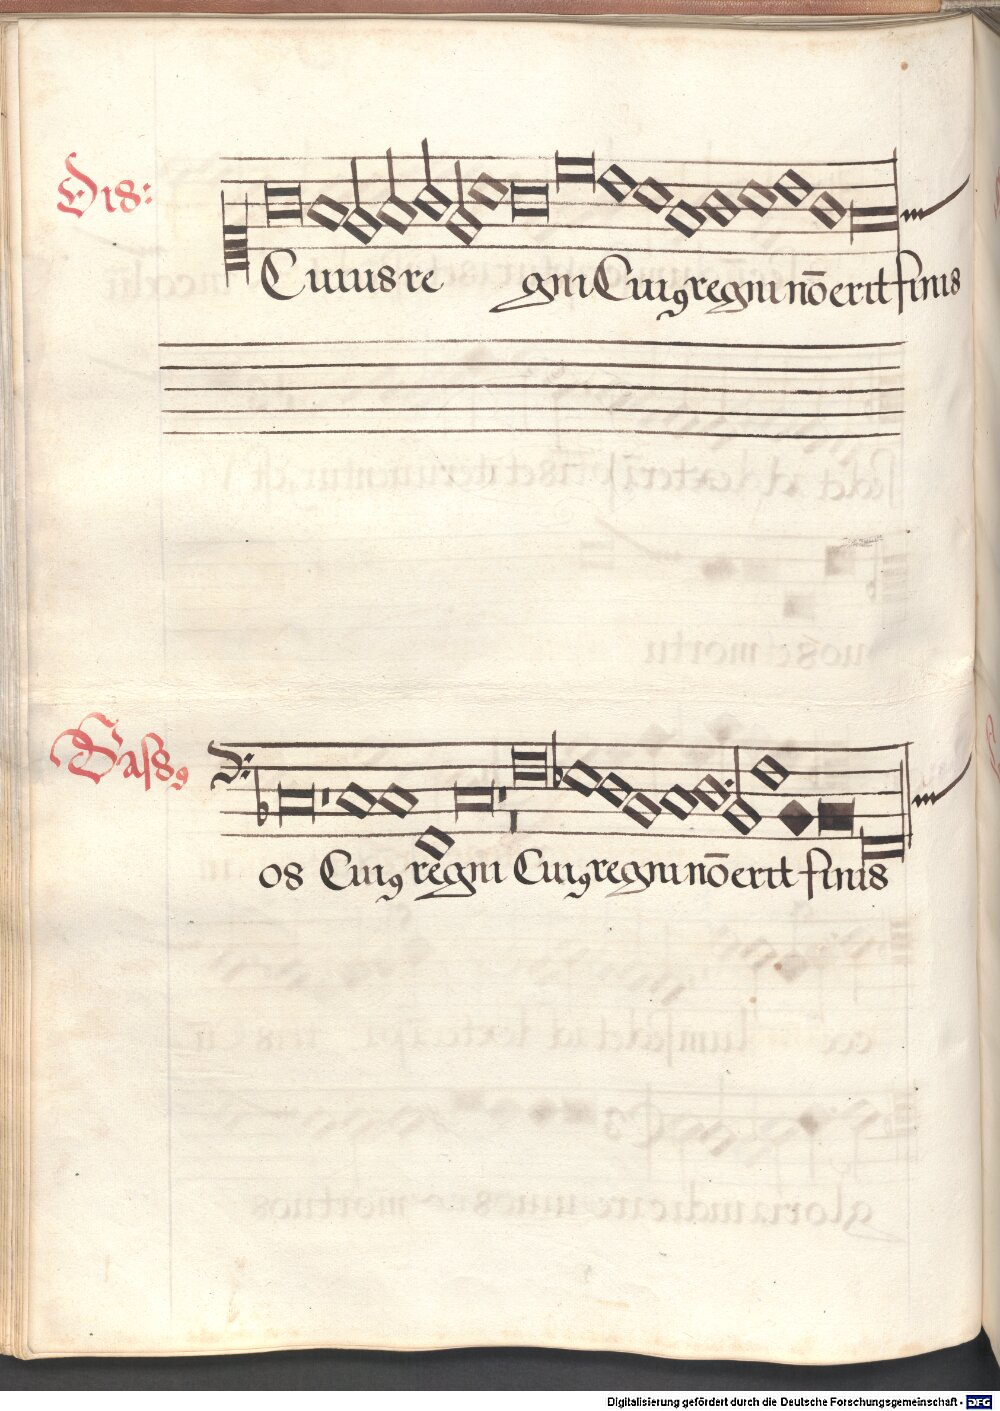 Dis:
Cuius re gni Cuiꝯ regni nō erit finis
Bassꝯ
os Cuiꝯ regni Cuiꝯ regni nō erit finis
Digitalisierung gefördert durch die Deutsche Forschungsgemeinschaft - DFG